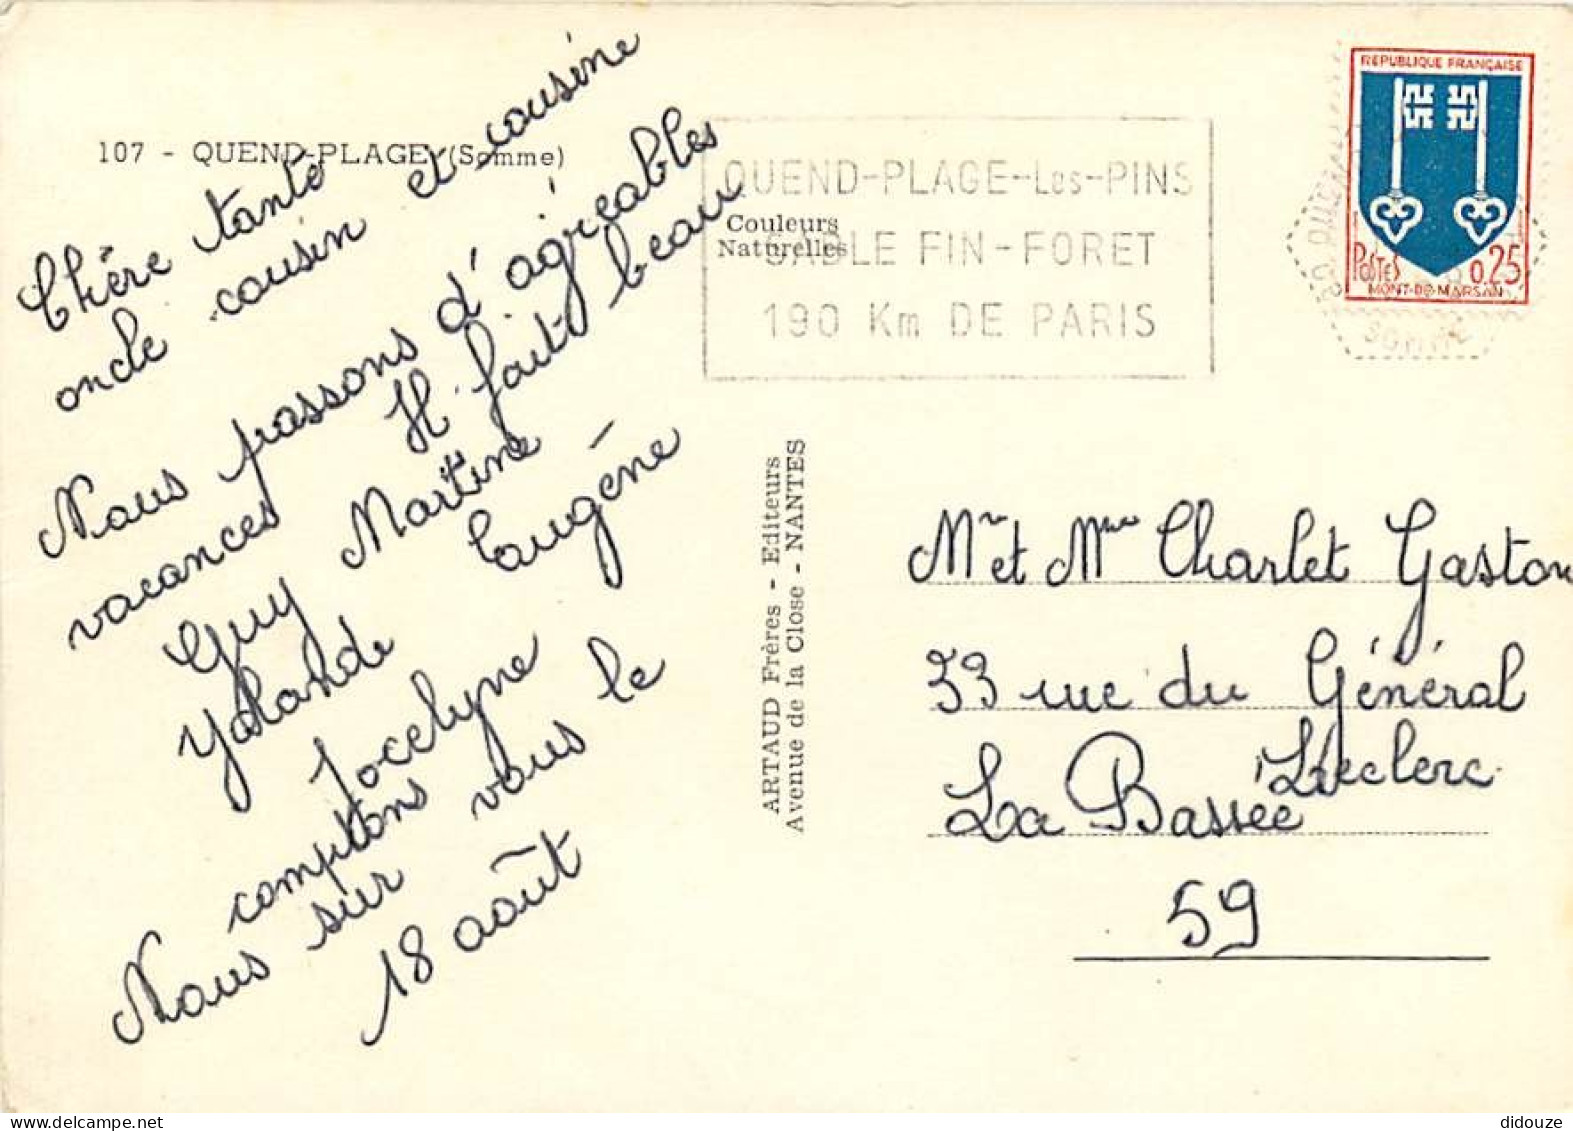 107 - QUEND-PLAGE (Somme)
Chère tante
oncle cousin et cousine
Nous passons d'agréables
vacances Il fait beau
Guy Martine
Yolande Eugène
Jocelyne
Nous comptons
sur vous le
18 août
QUEND-PLAGE-Les-PINS
SABLE FIN-FORET
190 Km DE PARIS
Couleurs
Naturelles
ARTAUD Frères - Editeurs
Avenue de la Close - NANTES
REPUBLIQUE FRANÇAISE
POSTES 0,25
MONT-DE-MARSAN
SOMME
Mr et Mme Charlet Gaston
33 rue du Général
Leclerc
La Bassée
59
didouze